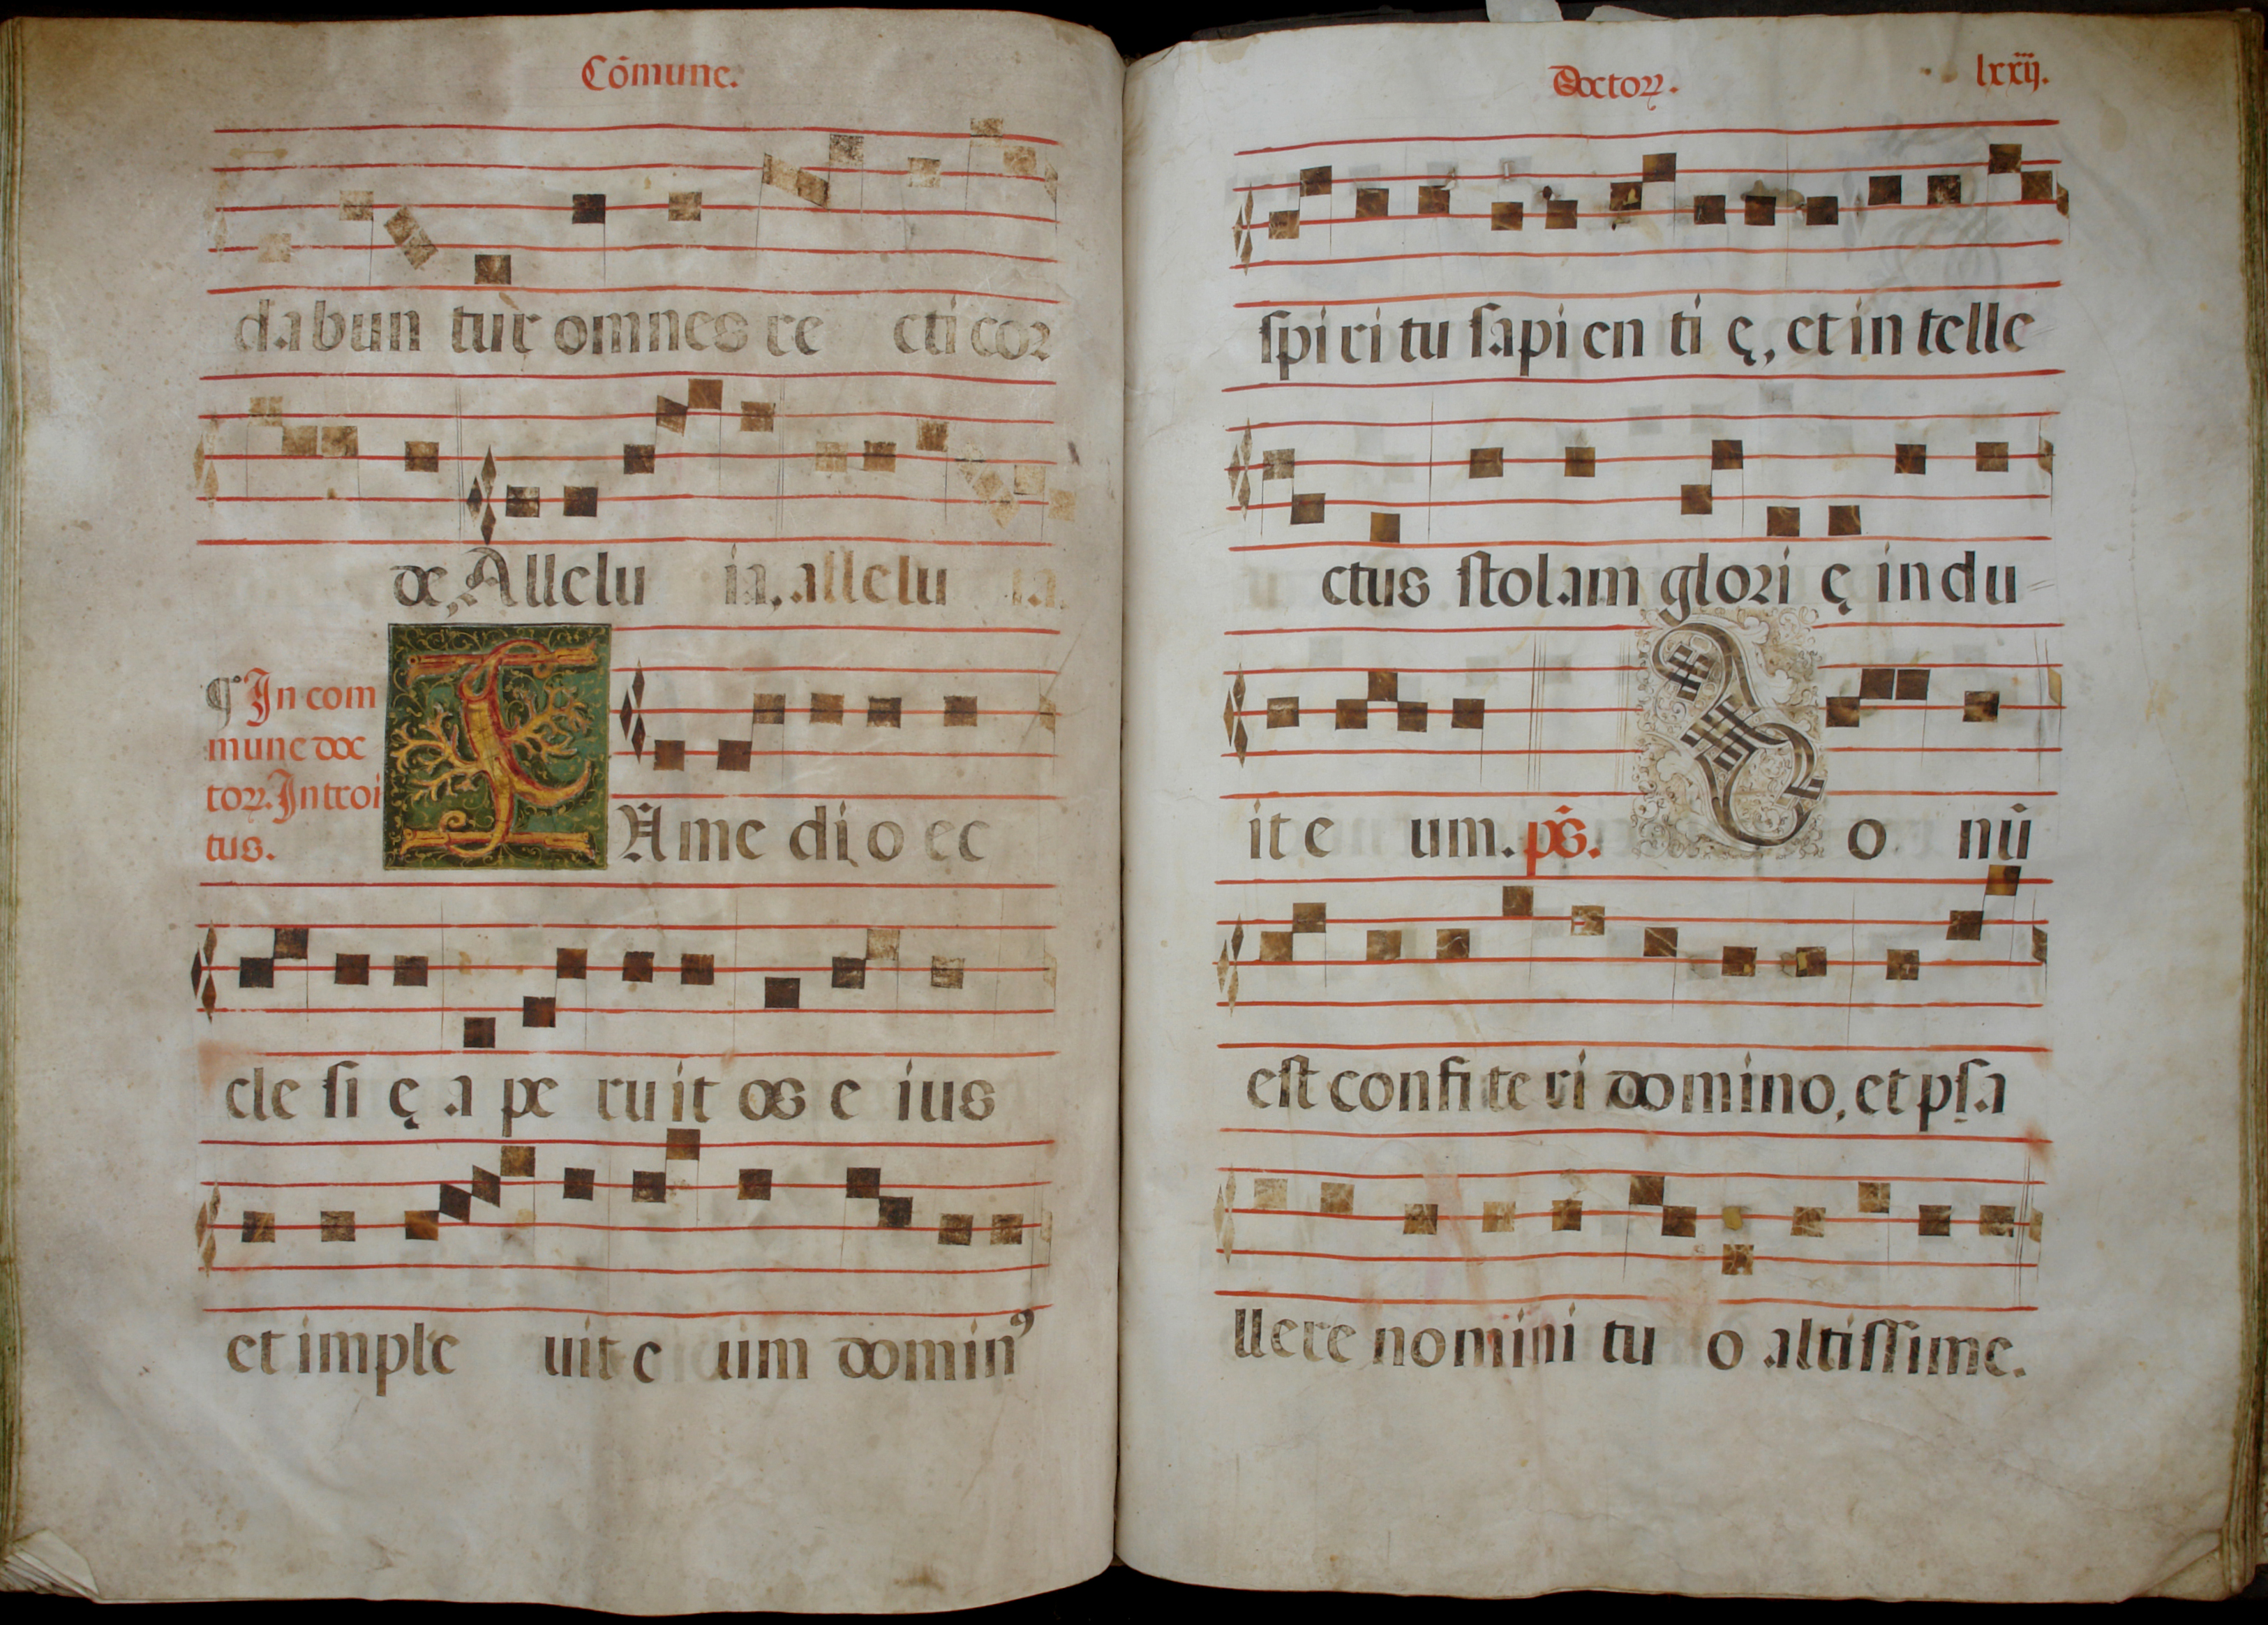 Cōmune.
dabun tur omnes re cti coꝛ
de, Allelu ia, allelu ia.
¶ In com
mune doc
toꝝ. Introi
tus.
IN me di o ec
cle ſi ę a pe ru it os e ius
et imple uit e um dominꝰ
Doctoꝝ. lxxij.
ſpi ri tu ſapi en ti ę, et in telle
ctus ſtolam gloꝛi ę indu
it e um. ps̄. Bo nū
eſt confi te ri domino, et pſa
llere nomini tu o altiſſime.